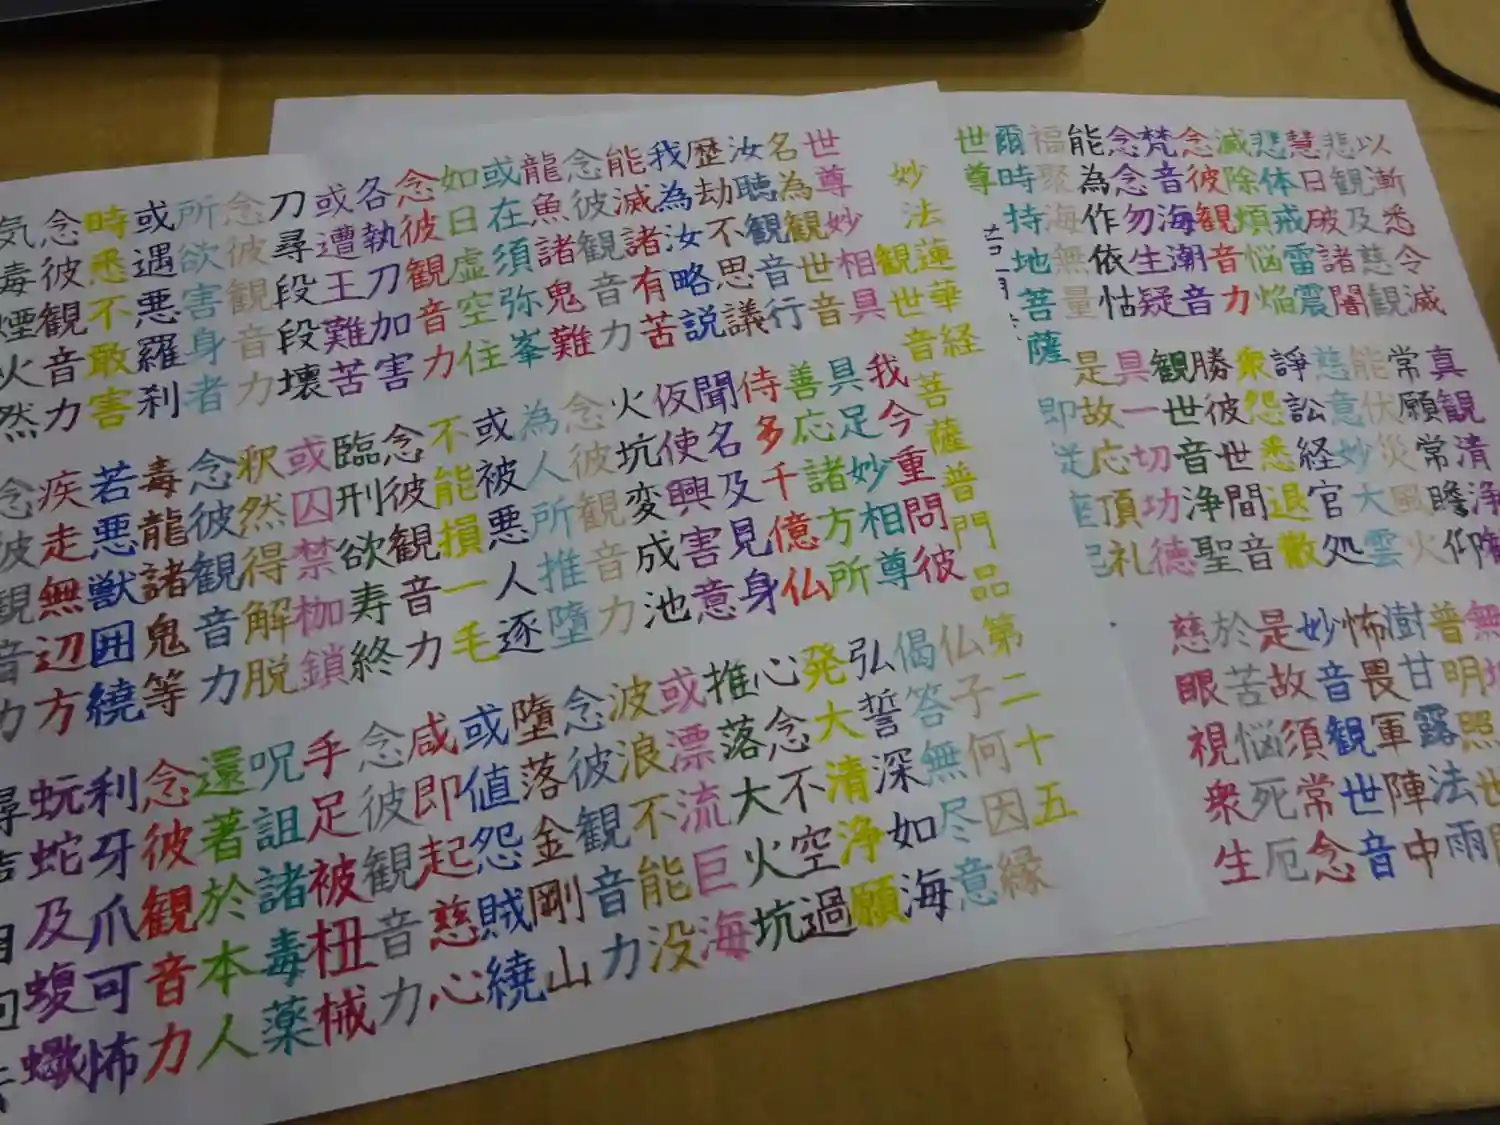 妙法蓮華経
観世音菩薩普門品第二十五
世尊妙相具 我今重問彼 仏子何因縁
名為観世音 具足妙相尊 偈答無尽意
汝聴観音行 善応諸方所 弘誓深如海
歴劫不思議 侍多千億仏 発大清浄願
我為汝略説 聞名及見身 心念不空過
能滅諸有苦 仮使興害意 推落大火坑
念彼観音力 火坑変成池 或漂流巨海
龍魚諸鬼難 念彼観音力 波浪不能没
或在須弥峯 為人所推墮 念彼観音力
如日虚空住 或被悪人逐 墮落金剛山
念彼観音力 不能損一毛 或値怨賊繞
各執刀加害 念彼観音力 咸即起慈心
或遭王難苦 臨刑欲寿終 念彼観音力
刀尋段段壊 或囚禁枷鎖 手足被杻械
念彼観音力 釈然得解脱 呪詛諸毒薬
所欲害身者 念彼観音力 還著於本人
或遇悪羅刹 毒龍諸鬼等 念彼観音力
時悉不敢害 若悪獣囲繞 利牙爪可怖
念彼観音力 疾走無辺方 蚖蛇及蝮蠍
気毒煙火然 念彼観音力 尋
以漸悉令滅 真観清浄
悲観及慈観 常願常瞻仰 無
慧日破諸闇 能伏災風火 普明照世
悲体戒雷震 慈意妙大雲 樹甘露法雨
滅除煩悩焔 諍訟経官処 怖畏軍陣中
念彼観音力 衆怨悉退散 妙音観世音
梵音海潮音 勝彼世間音 是故須常念
念念勿生疑 観世音浄聖 於苦悩死厄
能為作依怙 具一切功徳 慈眼視衆生
福聚海無量 是故応頂礼
爾時持地菩薩 即従座起
世尊